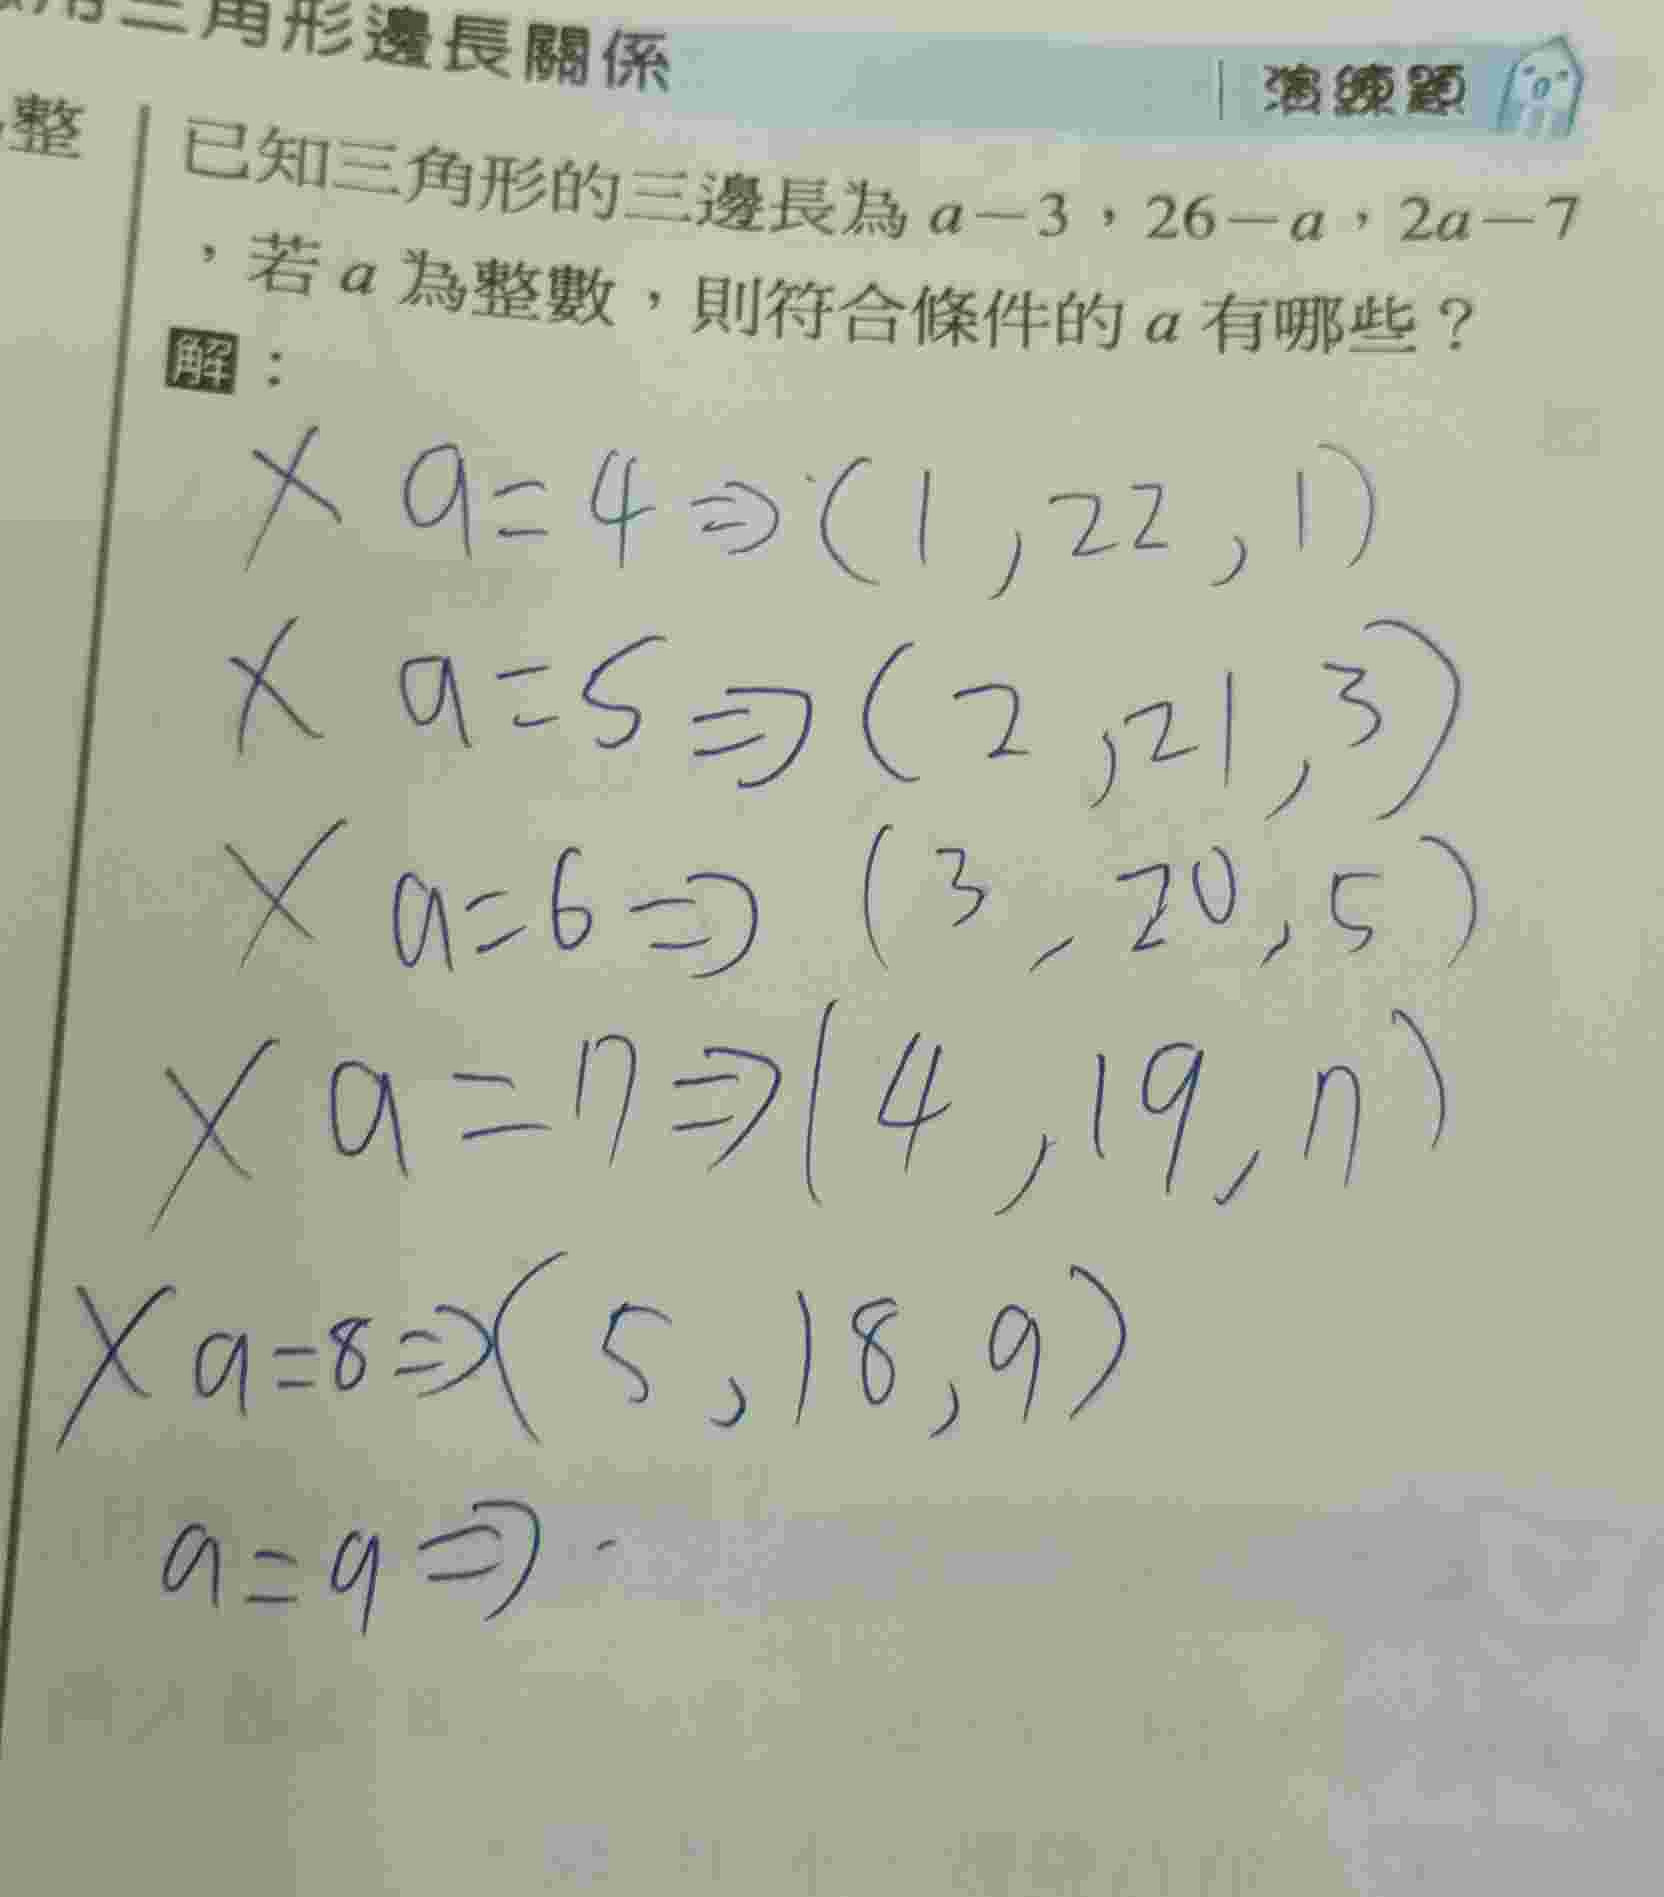 用三角形邊長關係
演練題
整
已知三角形的三邊長為 a－3，26－a，2a－7
，若 a 為整數，則符合條件的 a 有哪些？
解：
× a=4⇒(1,22,1)
× a=5⇒(2,21,3)
× a=6⇒(3,20,5)
× a=7⇒(4,19,7)
× a=8⇒(5,18,9)
a=9⇒